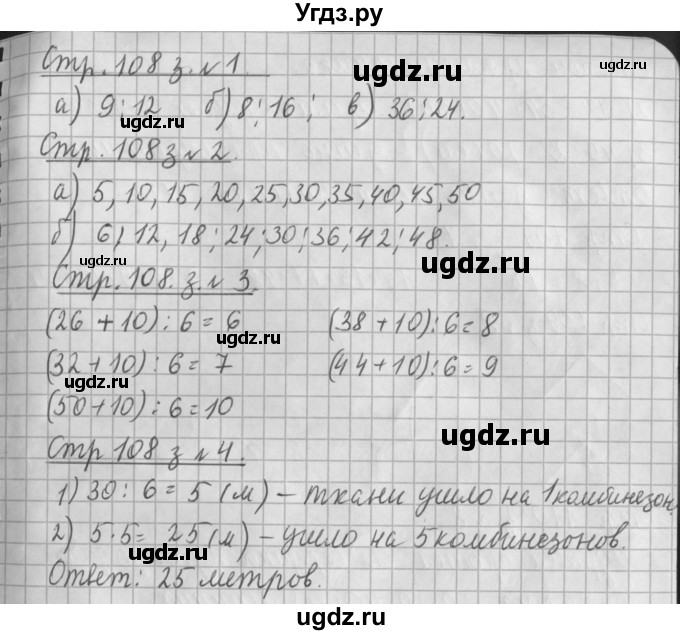 Угдз.ру
Стр. 108 з. № 1
а) 9; 12 б) 8; 16; в) 36; 24.
Стр. 108 з № 2.
а) 5, 10, 15, 20, 25, 30, 35, 40, 45, 50
б) 6, 12, 18; 24; 30; 36; 42; 48.
Стр. 108. з. № 3.
(26 + 10) : 6 = 6 (38 + 10) : 6 = 8
(32 + 10) : 6 = 7 (44 + 10) : 6 = 9
(50 + 10) : 6 = 10
Стр 108 з № 4.
1) 30 : 6 = 5 (м) – ткани ушло на 1 комбинезон.
2) 5 · 5 = 25 (м) – ушло на 5 комбинезонов.
Ответ: 25 метров.
ugdz.ru
ugdz.ru
ugdz.ru
ugdz.ru
ugdz.ru
ugdz.ru
ugdz.ru
ugdz.ru
ugdz.ru
ugdz.ru
ugdz.ru
ugdz.ru